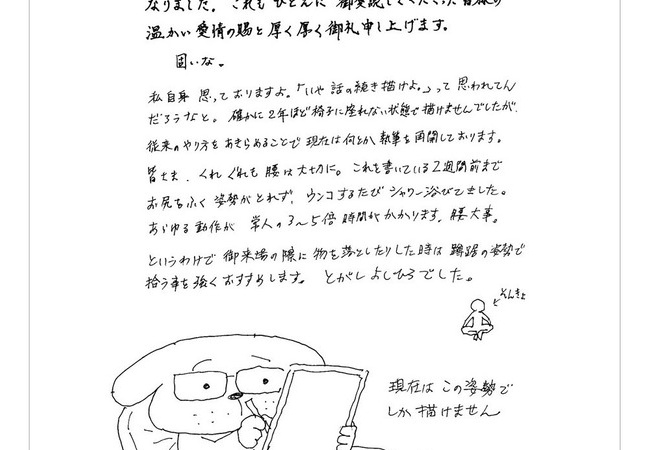 なりました。これもひとえに御愛読してくださった皆様の
温かい愛情の賜と厚く厚く御礼申し上げます。
固いな。
私自身思っておりますよ。「いや話の続き描けよ。」って思われてん
だろうなと。確かに2年ほど椅子に座れない状態で描けませんでしたが、
従来のやり方をあきらめることで現在は何とか執筆を再開しております。
皆さま、くれぐれも腰は大切に。これを書いている2週間前まで
お尻をふく姿勢がとれず、ウンコするたびシャワー浴びてました。
あらゆる動作が常人の3~5倍時間がかかります。腰大事。
というわけで御来場の際に物を落としたりした時は蹲踞の姿勢で
拾う事を強くおすすめします。とがしよしひろでした。
そんきょ
現在はこの姿勢で
しか描けません